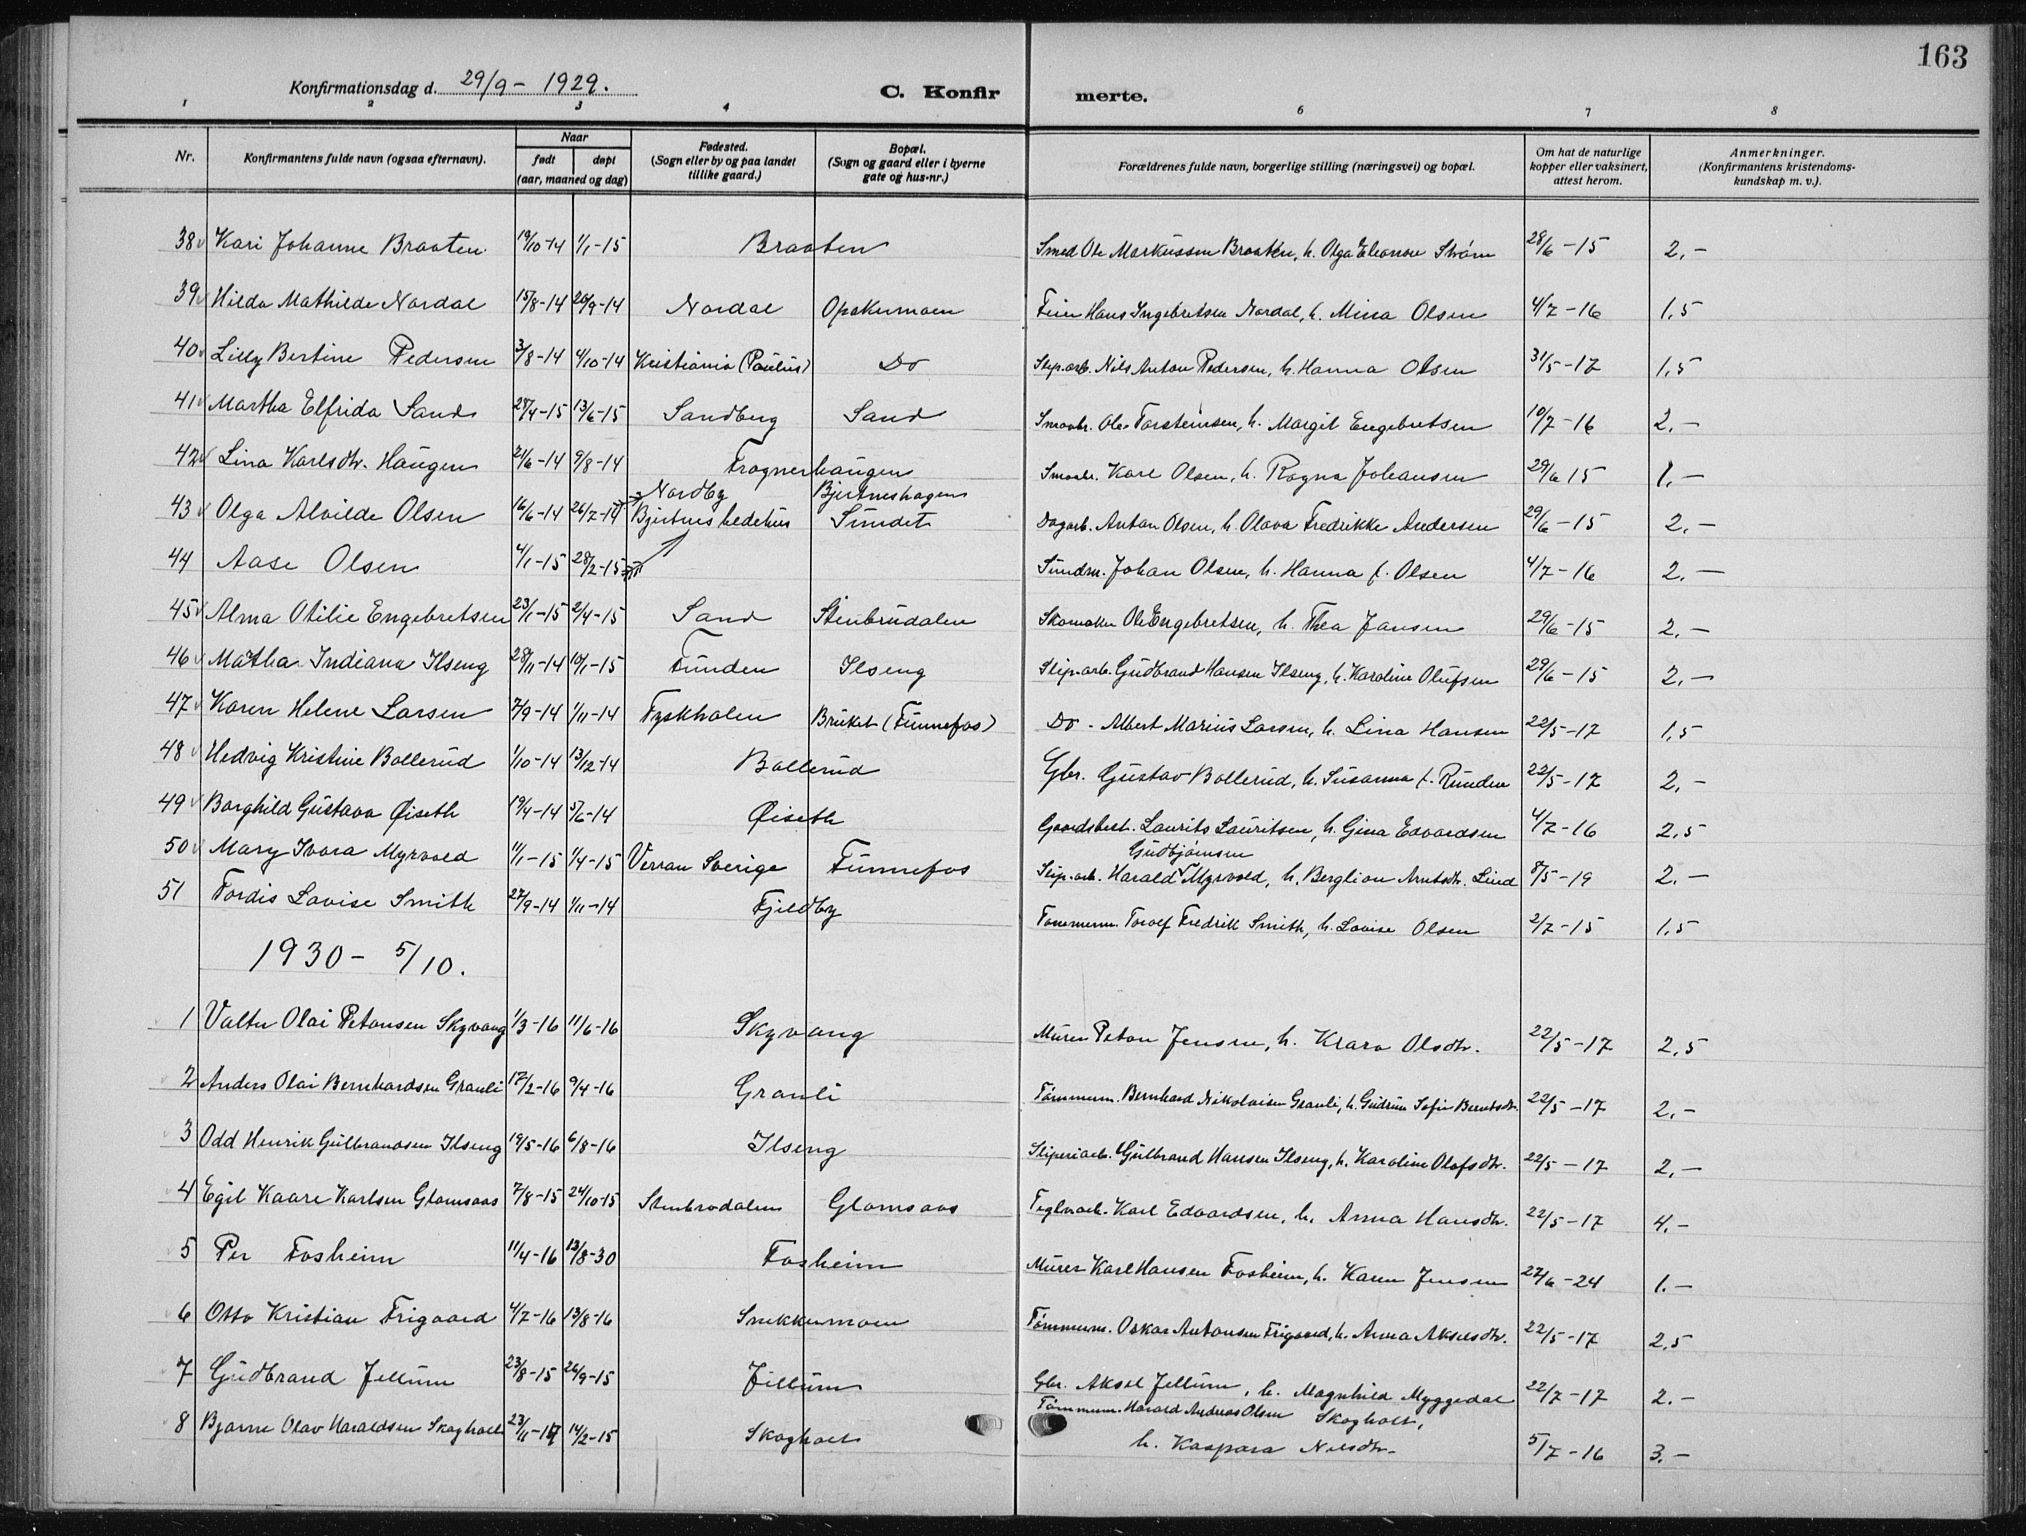 163
Konfirmationsdag d. 29/9 - 1929.
C. Konfirmerte.
1 2 3 4 6 7 8
Nr.
Konfirmantens fulde navn (ogsaa efternavn).
Naar
født døpt
(aar, maaned og dag)
Fødested.
(Sogn eller by og paa landet
tillike gaard.)
Bopæl.
(Sogn og gaard eller i byerne
gate og hus-nr.)
Forældrenes fulde navn, borgerlige stilling (næringsvei) og bopæl.
Om hat de naturlige
kopper eller vaksinert,
attest herom.
Anmerkninger.
(Konfirmantens kristendoms-
kundskap m. v.).
38 Kari Johanne Braaten 19/10-14 1/1-15 Braaten Smed Ole Markussen Braaten, h. Olga Eleonore Strøm 28/6-15 2,-
39 Hilda Mathilde Nordal 15/8-14 20/9-14 Nordal Opakermoen Feier Hans Ingebretsen Nordal, h. Mina Olsen 4/7-16 1,5
40 Lilly Bertine Pedersen 3/8-14 4/10-14 Kristiania (Paulus) Do Slip.arb. Nils Anton Pedersen, h. Hanna Olsen 31/5-17 1,5
41 Martha Elfrida Sand 28/4-15 13/6-15 Sandberg Sand Smaabr. Ole Torsteinsen, h. Margit Engebretsen 10/7-16 2,-
42 Lina Karlsdtr. Haugen 21/6-14 9/8-14 Frognerhaugen Smaabr. Karl Olsen, h. Ragna Johansen 29/6 15 1,-
Nordby Bjertneshagen
43 Olga Alvilde Olsen 16/6-14 26/7-14 Bjertnes hedehus Sundet Dagarb. Anton Olsen, h. Olava Fredrikke Andersen 29/6-15 2,-
44 Aase Olsen 4/1-15 28/2-15 Sundm. Johan Olsen, h. Hanna f. Olsen 4/7-16 2,-
45 Alma Otilie Engebretsen 23/1-15 2/4-15 Sand Stenbrudalen Skomaker Ole Engebretsen, h. Thea Jansen 29/6-15 2,-
46 Matha Indiana Ilseng 28/11-14 10/1-15 Funden Ilseng Slip.arb. Gudbrand Hansen Ilseng, h. Karoline Olufsen 29/6-15 2,-
47 Karen Helene Larsen 7/9-14 1/11-14 Fyskholen Bruket (Funnefos) Do - Albert Marius Larsen, h. Lina Hansen 22/5-17 1,5
48 Hedvig Kristine Bollerud 1/10-14 13/12-14 Bollerud Gbr. Gustav Bollerud, h. Susanna f. Runden 22/5-17 2,-
49 Borghild Gustava Øiseth 19/4-14 5/6-14 Øiseth Gaardsbest. Laurits Lauritsen, h. Gina Edvardsen 4/7-16 2,5
Gudbjørnsen
50 Mary Ivara Myrvold 11/1-15 1/4-15 Verran Sverige Funnefos Slip.arb. Harald Myrvold, h. Bergliou Arntsdtr. Lind 8/5-19 2,-
51 Tordis Lovise Smith 27/9-14 1/11-14 Fjeldby Tømmerm. Torolf Fredrik Smith, h. Lovise Olsen 2/7-15 1,5
1930 - 5/10.
1 Valter Olai Petonsen Skyvang 1/3-16 11/6-16 Skyvang Murer Peton Jensen, h. Klara Olsdtr. 22/5-17 2,5
2 Anders Olai Bernhardsen Granli 17/2-16 9/4-16 Granli Tømmerm. Bernhard Nikolaisen Granli, h. Gudrun Sofie Berntsdtr. 22/5-17 2,-
3 Odd Henrik Gulbrandsen Ilseng 19/5-16 6/8-16 Ilseng Sliperiarb. Gulbrand Hansen Ilseng, h. Karoline Olofsdtr. 22/5-17 2,-
4 Egil Kaare Karlsen Glomsaas 7/8-15 24/10-15 Stenbrodalen Glomsaas Teglv.arb. Karl Edvardsen, h. Anna Hansdtr. 22/5-17 4,-
5 Per Fosheim 11/4-16 13/8-30 Fosheim Murer Karl Hansen Fosheim, h. Karen Jensen 27/6-24 1.-
6 Otto Kristian Frigaard 4/7-16 13/8-16 Snekkermoen Tømmerm. Oskar Antonsen Frigaard, h. Anna Akselsdtr. 22/5-17 2,5
7 Gudbrand Jellum 23/8-15 26/9-15 Jellum Gbr. Aksel Jellum, h. Magnhild Myggedal 22/7-17 2.-
Tømmerm. Harald Andreas Olsen Skogholt,
8 Bjarne Olav Haraldsen Skogholt 23/11-14 14/2-15 Skogholt h. Kaspara Nilsdtr- 5/7-16 3.-